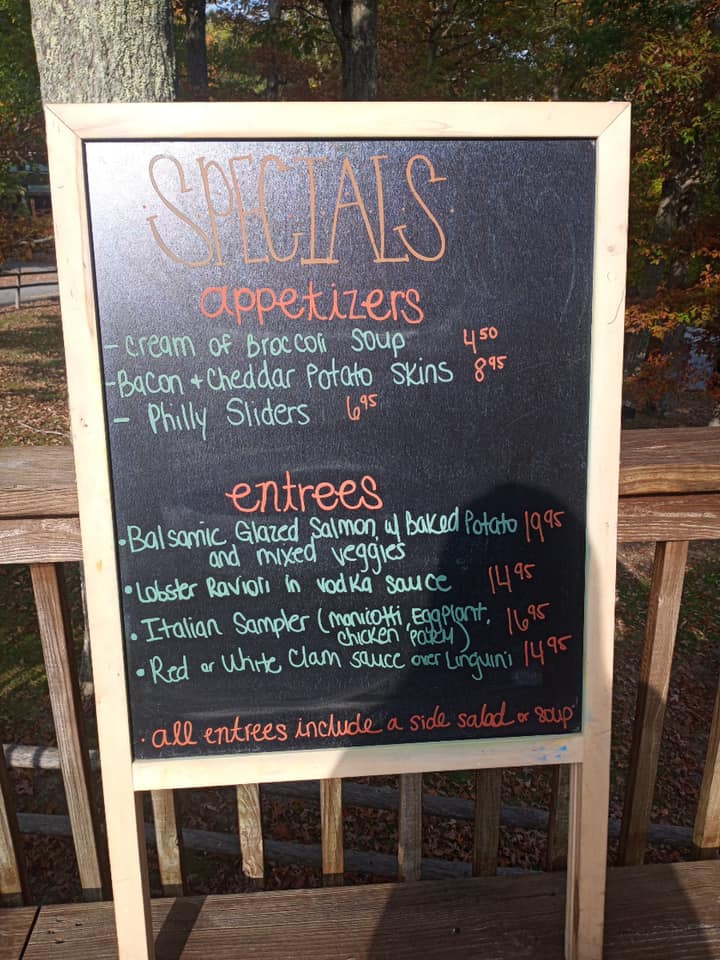 SPECIALS
appetizers
- Cream of Broccoli Soup 4.50
- Bacon + Cheddar Potato Skins 8.95
- Philly Sliders 6.95
entrees
• Balsamic Glazed Salmon w/ Baked Potato 19.95
and mixed veggies
• Lobster Ravioli in vodka sauce 14.95
• Italian Sampler (manicotti, Eggplant, 16.95
chicken patty)
• Red or White Clam sauce over Linguini 14.95
• all entrees include a side salad or soup